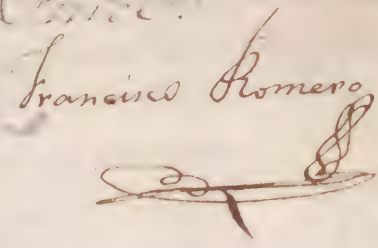 Francisco Romero